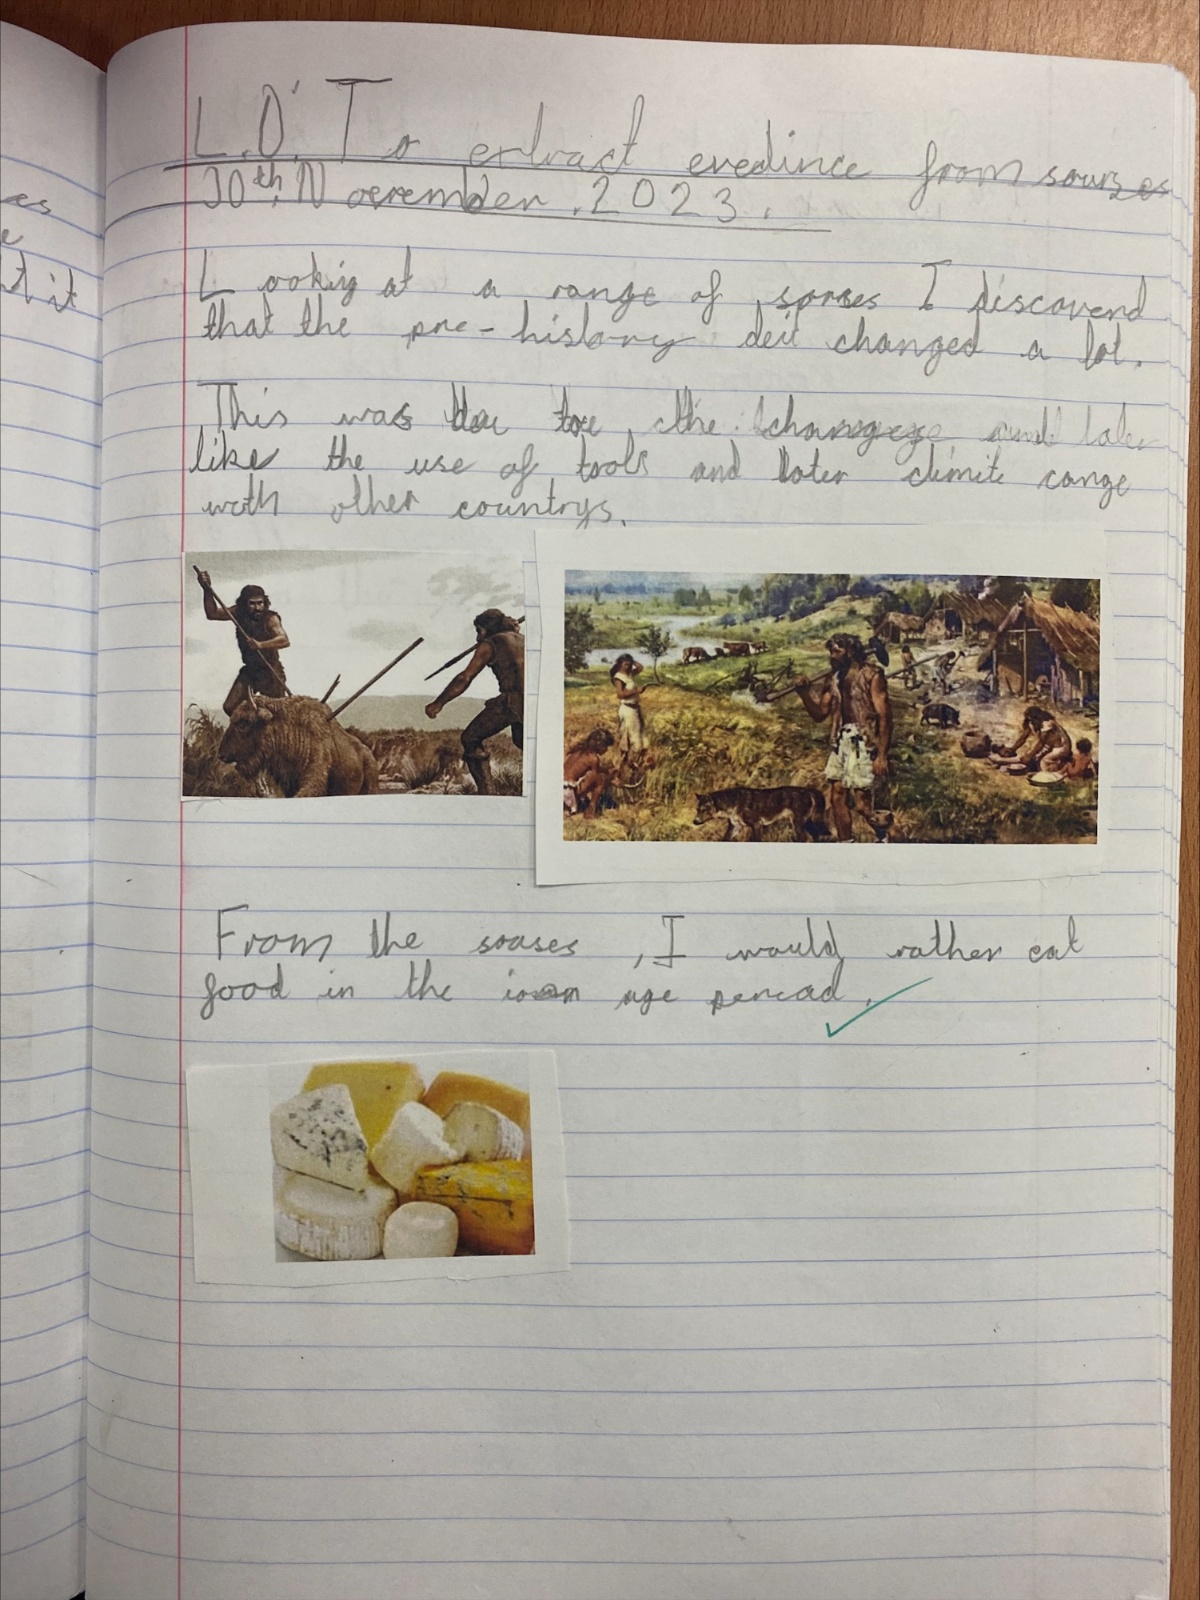 es
e
t it
L.O: To extract evedince from sourses
30th November 2023.
Looking at a range of sorses I discoverd
that the pre-history deit changed a lot.
This was the changes
like the use of tools and later climite cange
with other countrys.
From the souses, I would rather eat
food in the iron age peread.